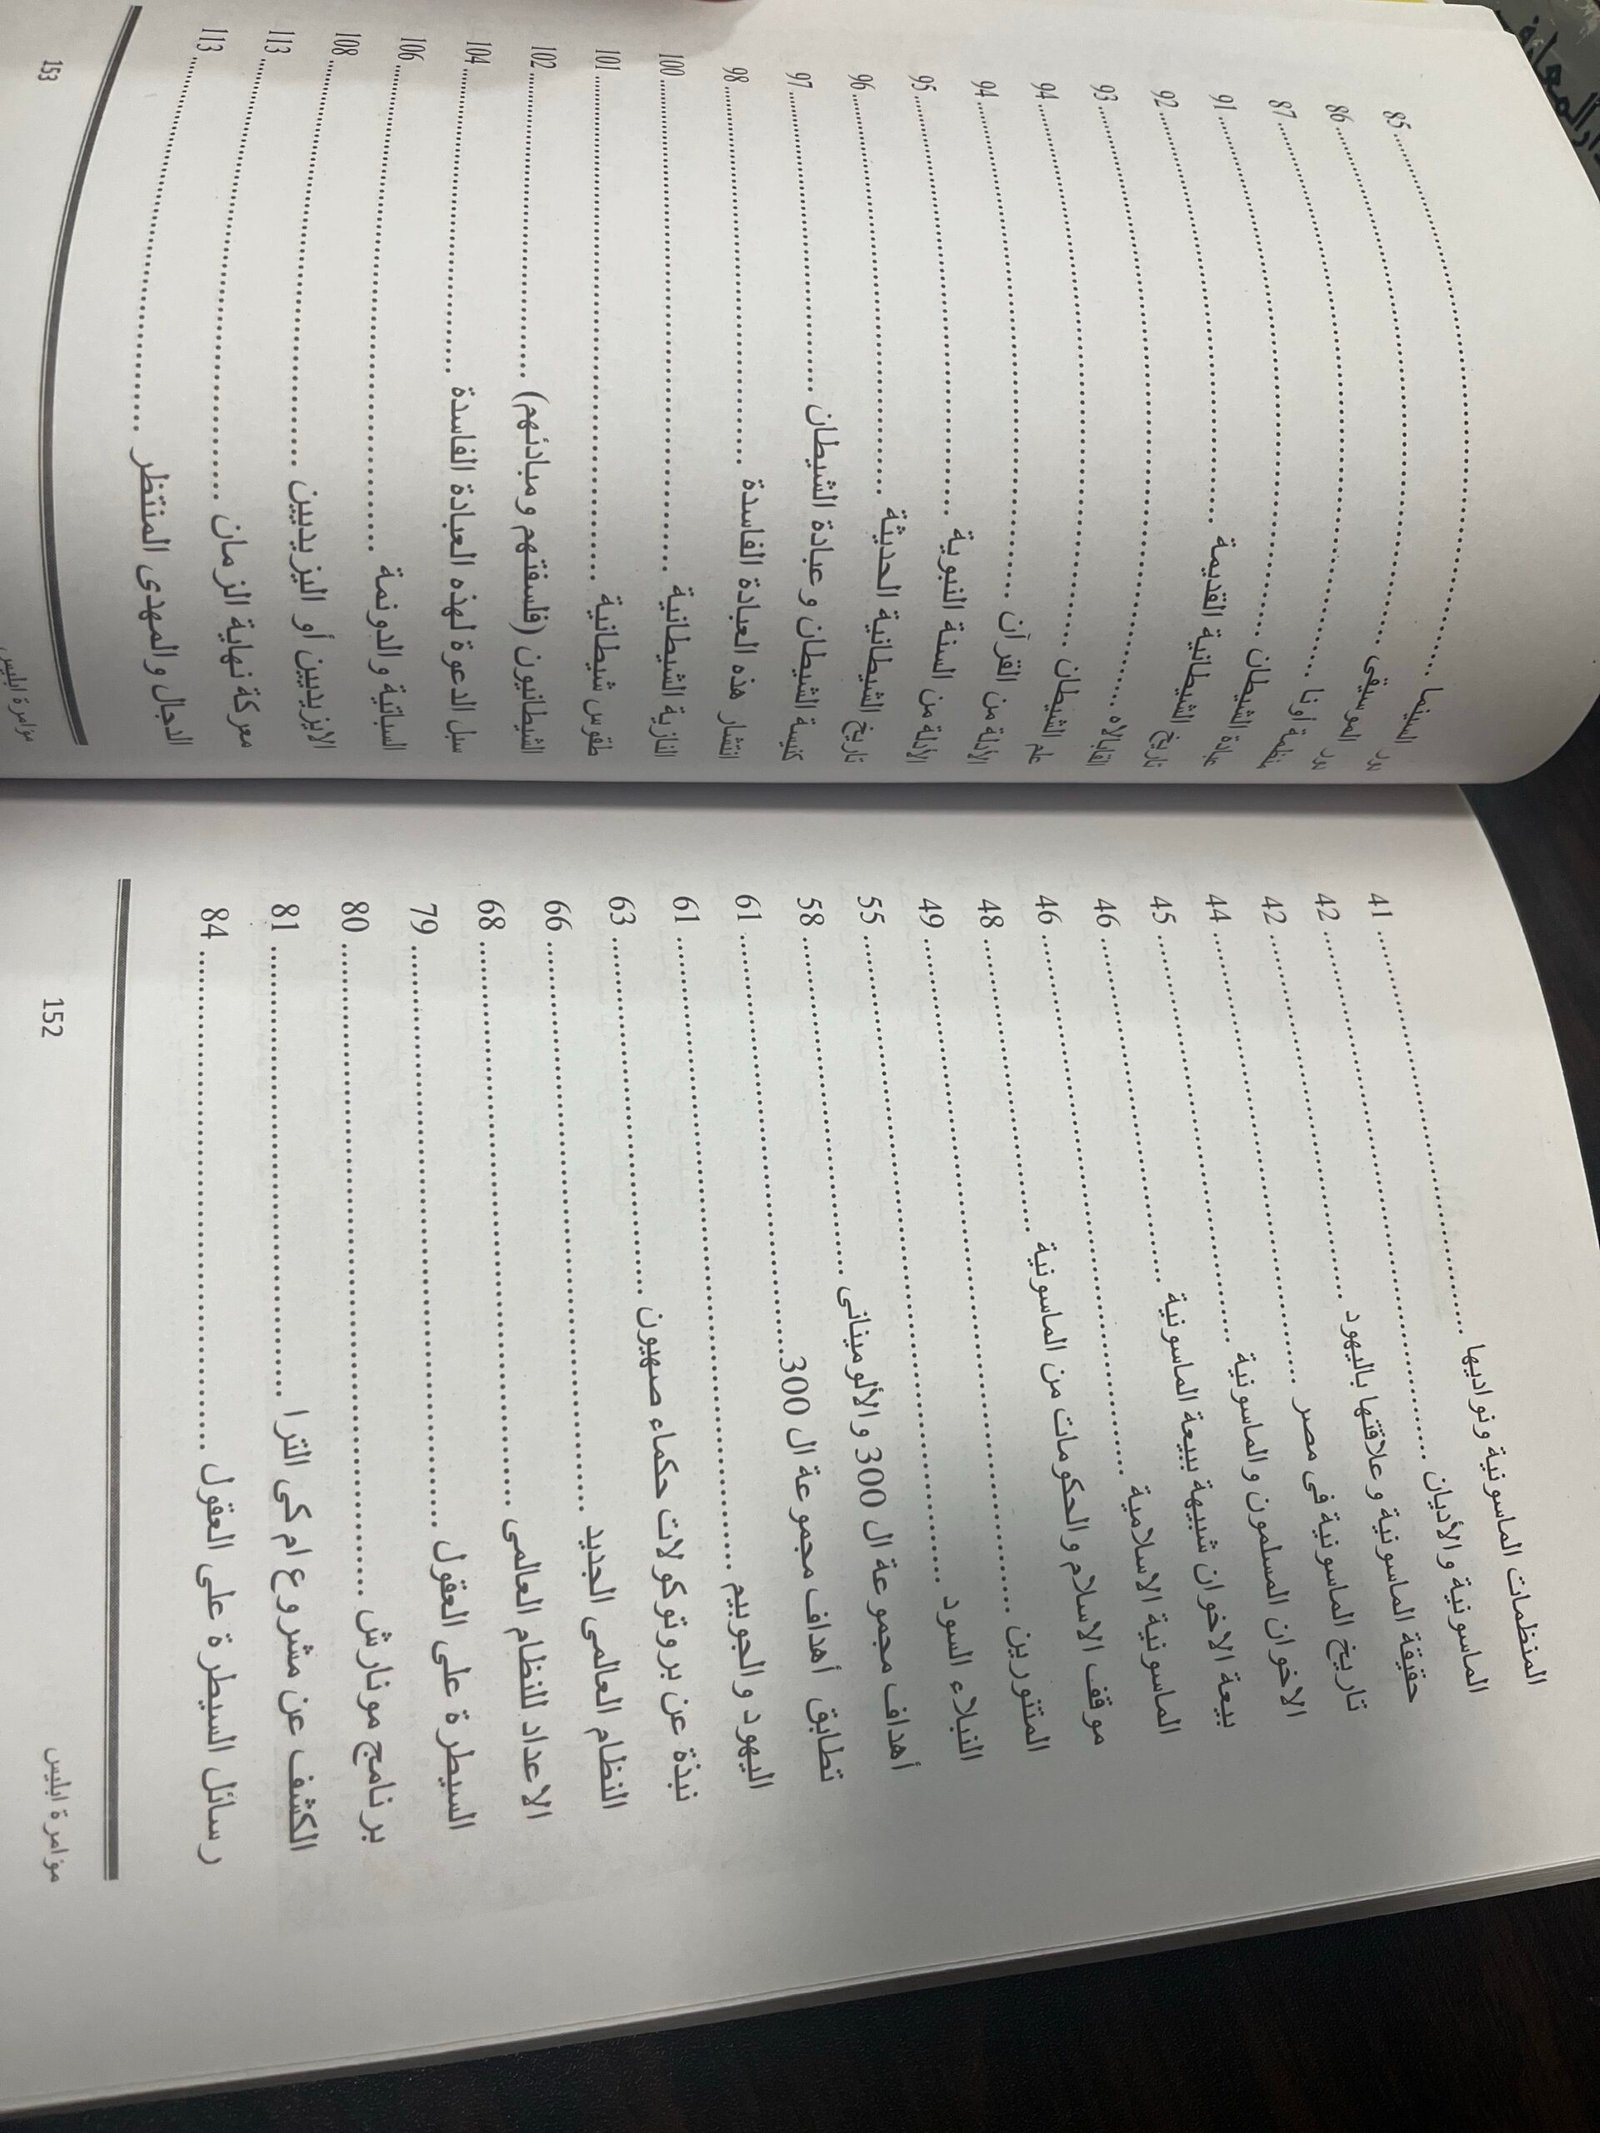 المنظمات الماسونية ونواديها ........ 41
الماسونية والأديان ........ 42
حقيقة الماسونية وعلاقتها باليهود ........ 42
تاريخ الماسونية فى مصر ........ 44
الاخوان المسلمون والماسونية ........ 45
بيعة الاخوان شبيهة ببيعة الماسونية ........ 46
الماسونية الاسلامية ........ 46
موقف الاسلام والحكومات من الماسونية ........ 48
المتنورين ........ 49
النبلاء السود ........ 55
أهداف مجموعة ال 300 والألوميناتى ........ 58
تطابق أهداف مجموعة ال 300 ........ 61
اليهود والجوييم ........ 61
نبذة عن بروتوكولات حكماء صهيون ........ 63
النظام العالمى الجديد ........ 66
الاعداد للنظام العالمى ........ 68
السيطرة على العقول ........ 79
برنامج مونارش ........ 80
الكشف عن مشروع ام كى الترا ........ 81
رسائل السيطرة على العقول ........ 84
152
مؤامرة ابليس
السينما ........ 85
الموسيقى ........ 86
أونا ........ 87
عبادة الشيطان ........ 91
تاريخ الشيطانية القديمة ........ 92
القابالاه ........ 93
علم الشيطان ........ 94
الأدلة من القرآن ........ 94
الأدلة من السنة النبوية ........ 95
تاريخ الشيطانية الحديثة ........ 96
كنيسة الشيطان وعبادة الشيطان ........ 97
انتشار هذه العبادة الفاسدة ........ 98
النازية الشيطانية ........ 100
طقوس شيطانية ........ 101
الشيطانيون (فلسفتهم ومبادئهم) ........ 102
سبل الدعوة لهذه العبادة الفاسدة ........ 104
السباتية والدونمة ........ 106
الايزيديين أو اليزيديين ........ 108
معركة نهاية الزمان ........ 113
الدجال والمهدى المنتظر ........ 113
153
مؤامرة ابليس